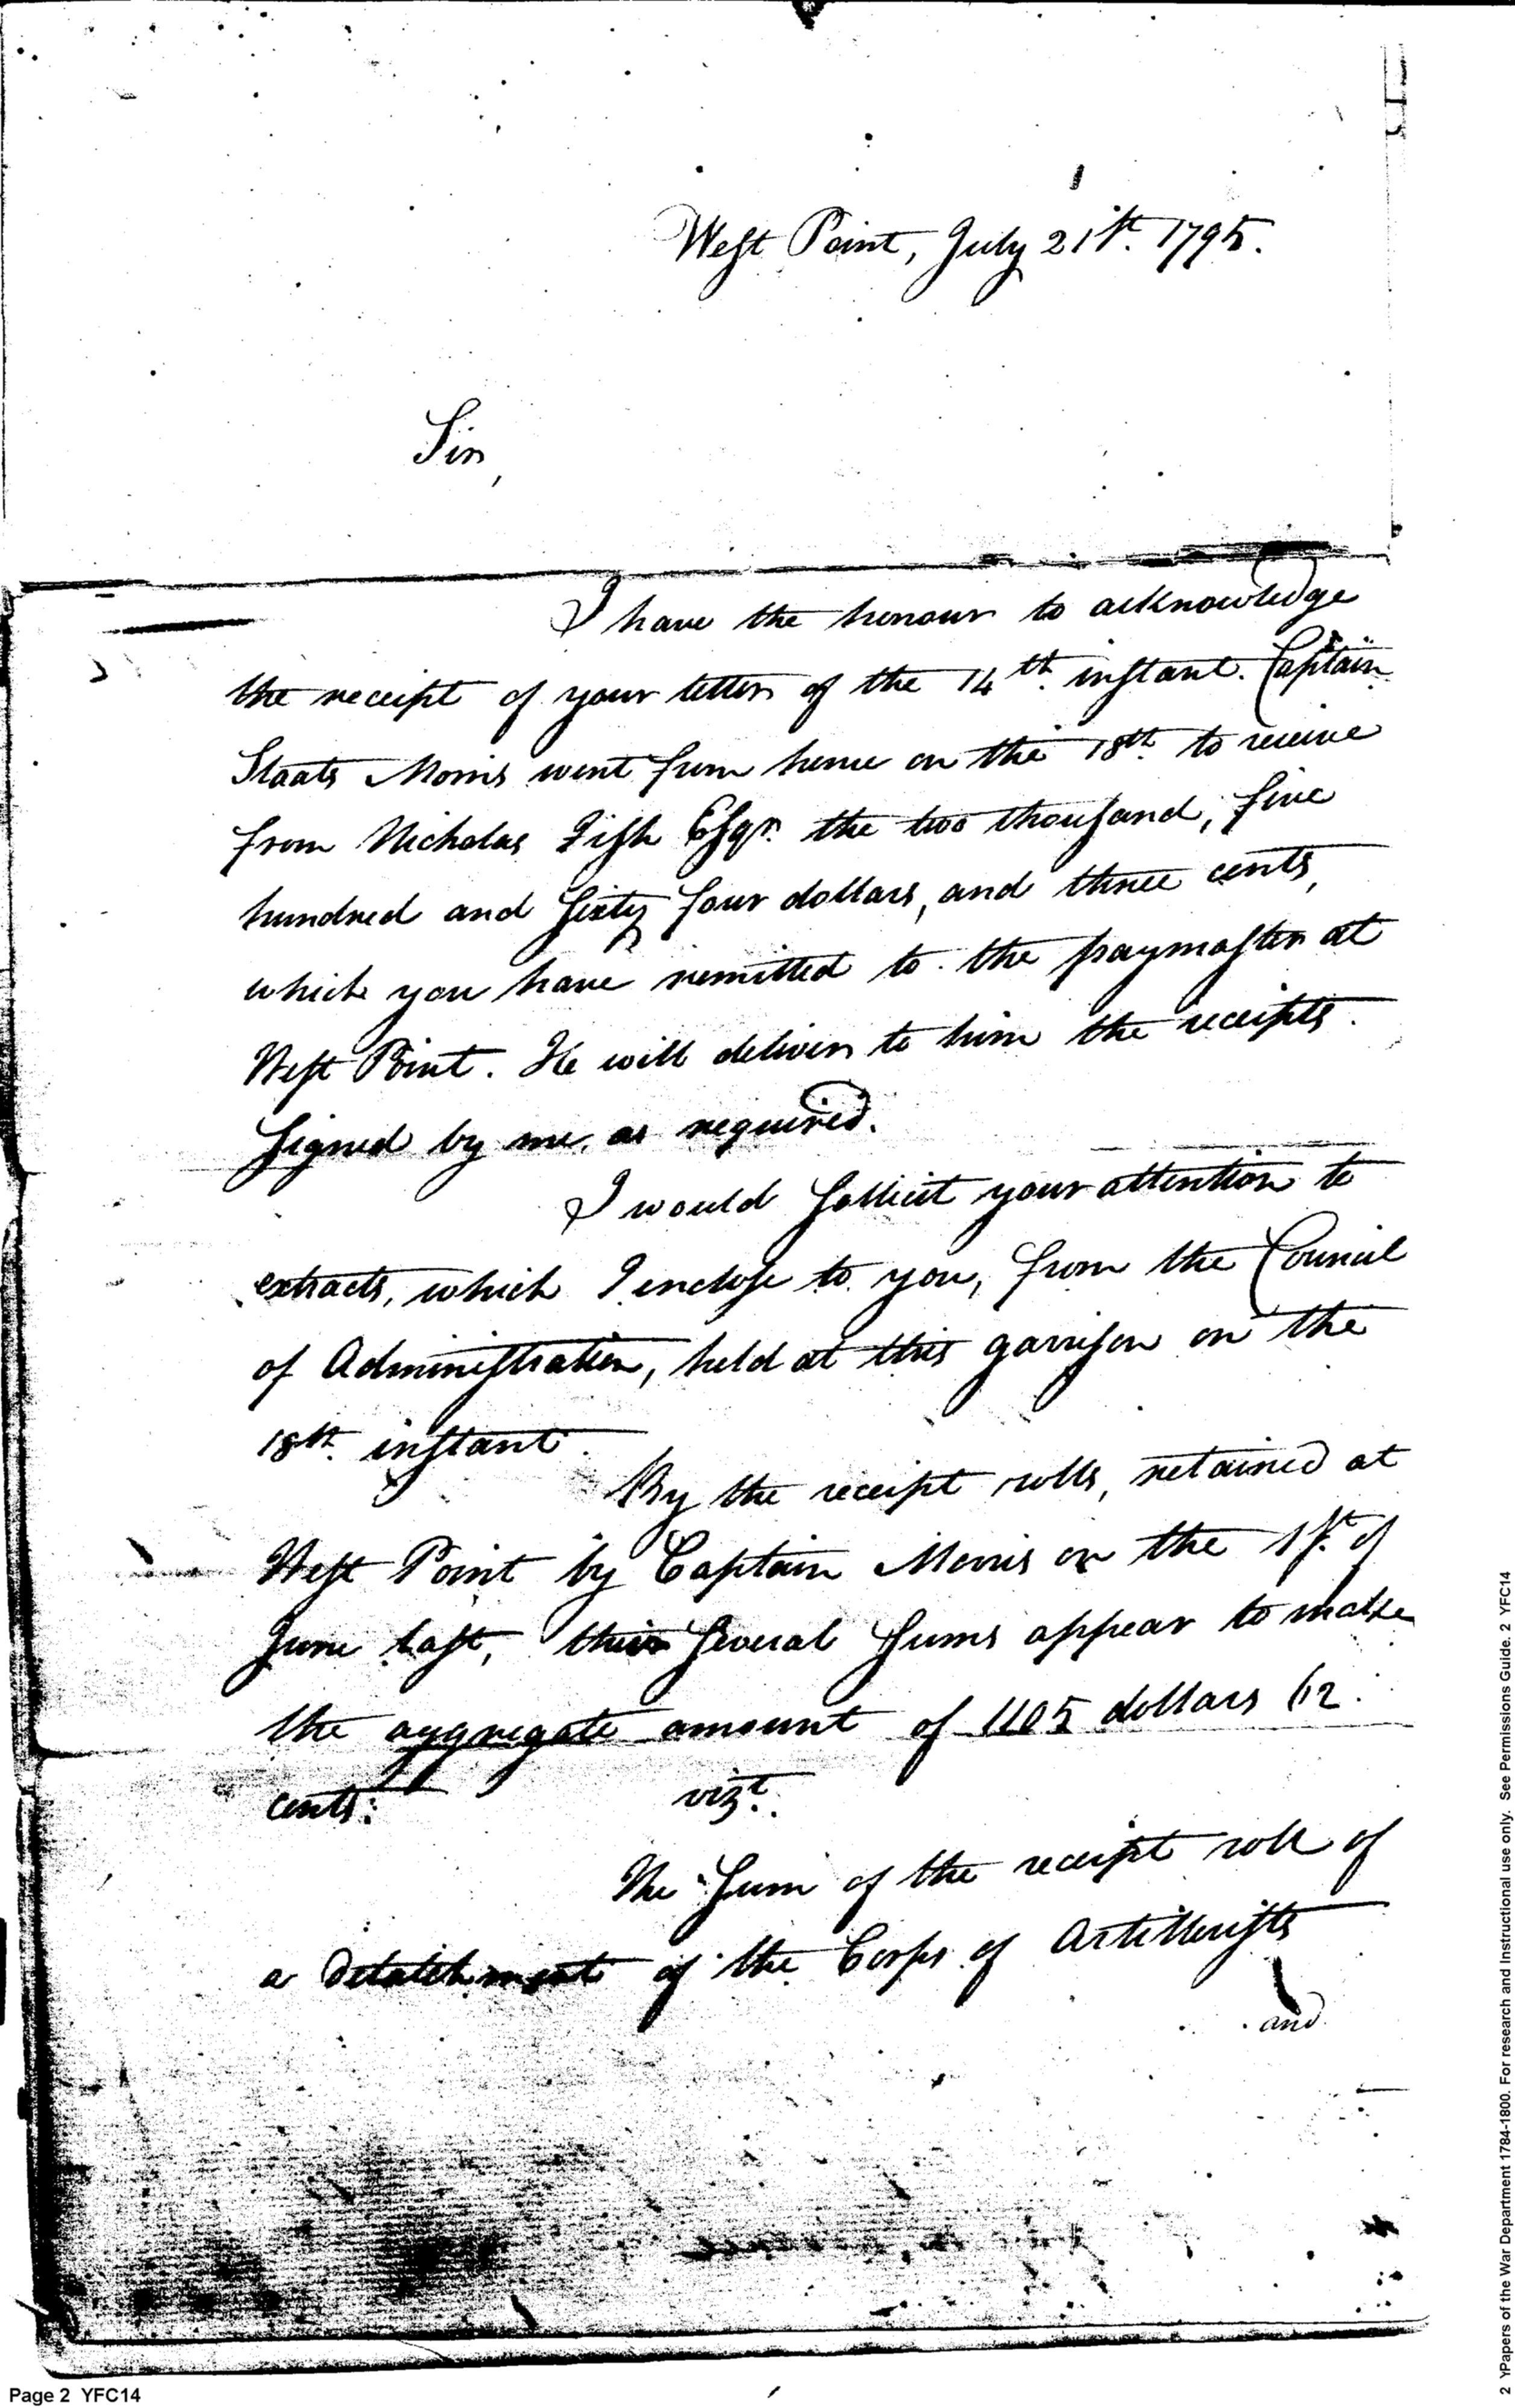 West Point, July 21st. 1795.
Sir,
I have the honour to acknowledge
the receipt of your letter of the 14th. instant. Captain
Staats Morris went from hence on the 18th. to receive
from Nicholas Fish Esqr. the two thousand, five
hundred and sixty four dollars, and three cents,
which you have remitted to the paymaster at
West Point. He will deliver to him the receipts
signed by me, as required.
I would sollicit your attention to
extracts, which I enclose to you, from the Council
of Administration, held at this garrison on the
18th. instant.
By the receipt rolls, retained at
West Point by Captain Morris on the 1st. of
June last, their several sums appear to make
the aggregate amount of 1105 dollars 62
cents: vizt.
The sum of the receipt roll of
a detatchment of the Corps of Artillerists
and
Page 2 YFC14
2 YPapers of the War Department 1784-1800. For research and Instructional use only. See Permissions Guide. 2 YFC14